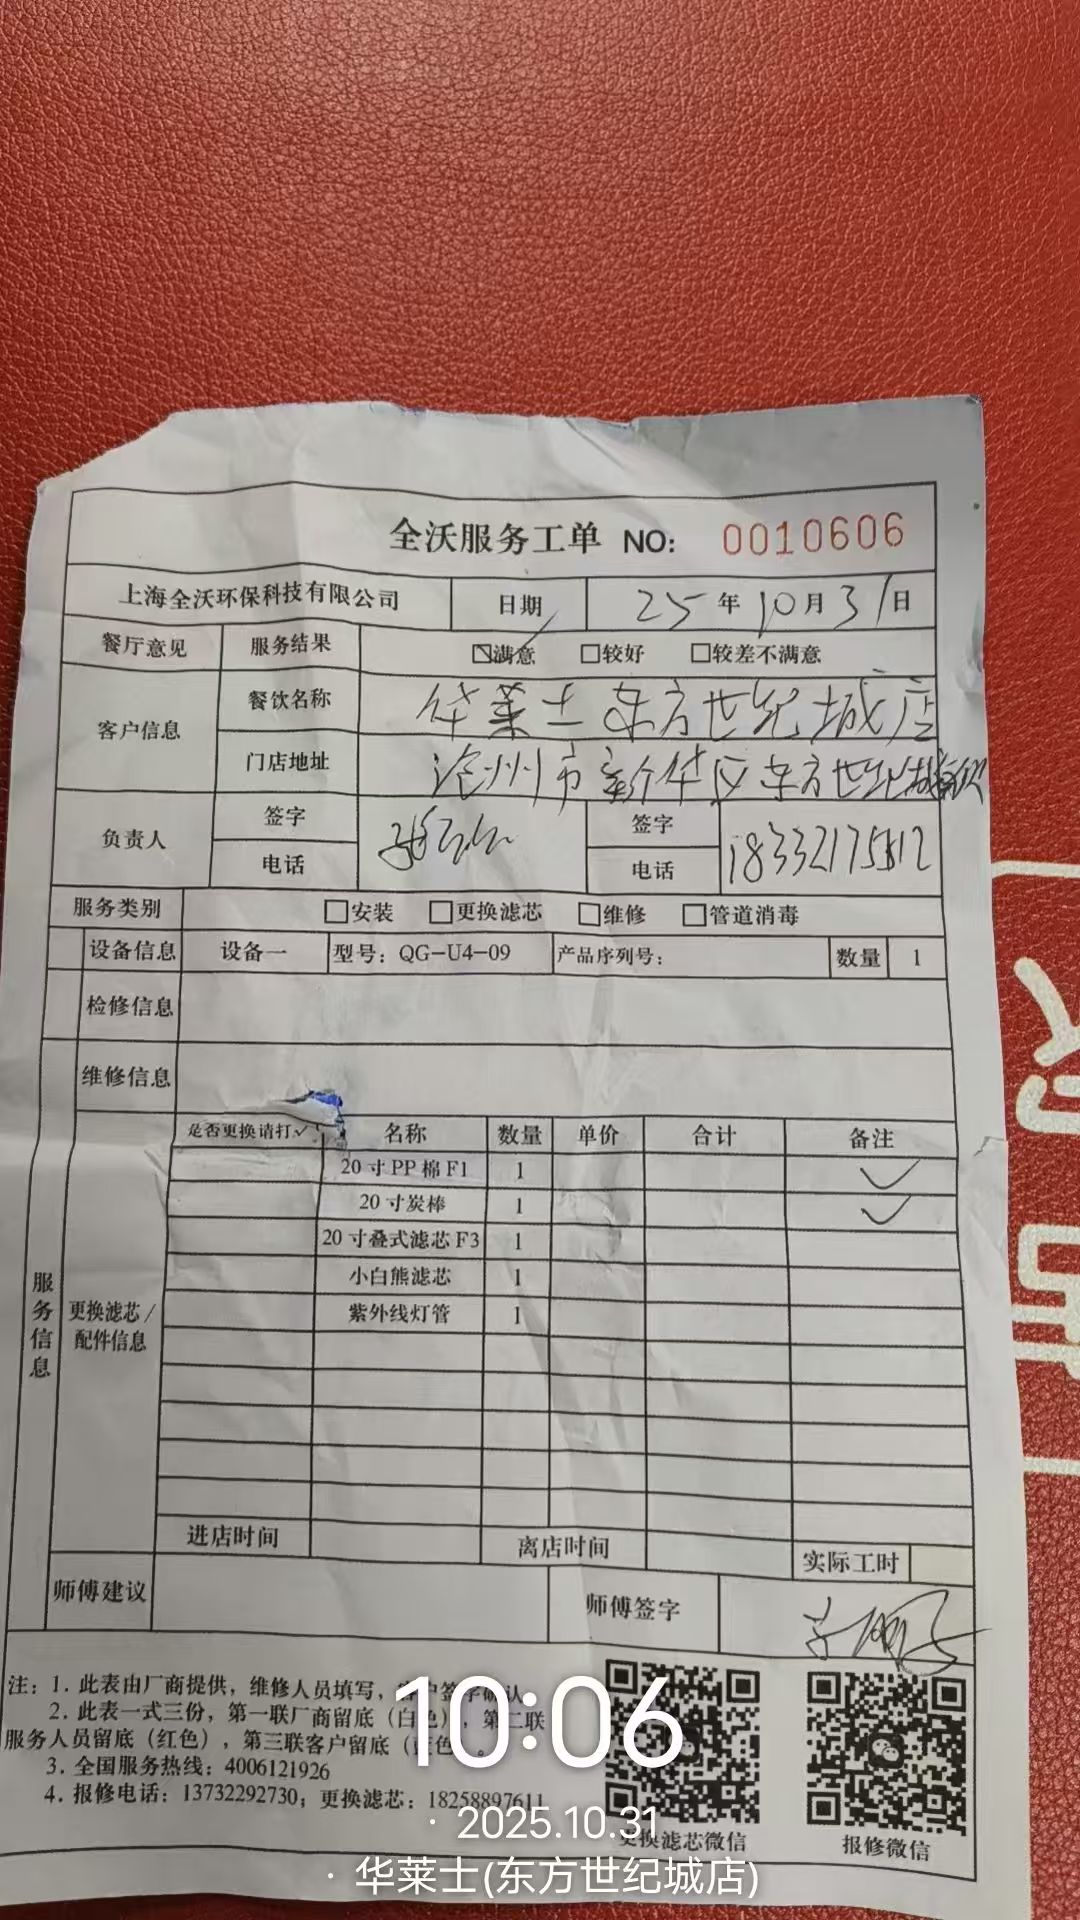 全沃服务工单 NO: 0010606
上海全沃环保科技有限公司 日期 25年10月31日
餐厅意见 服务结果 ☑满意 □较好 □较差不满意
客户信息 餐饮名称 华莱士东方世纪城店
门店地址 沧州市新华区东方世纪城
负责人 签字 电话 签字 电话 18332175812
服务类别 □安装 □更换滤芯 □维修 □管道消毒
设备信息 设备一 型号: QG-U4-09 产品序列号: 数量 1
检修信息
维修信息
服务信息
更换滤芯/配件信息
是否更换请打✓ 名称 数量 单价 合计 备注
20寸PP棉F1 1 ✓
20寸炭棒 1 ✓
20寸叠式滤芯F3 1
小白熊滤芯 1
紫外线灯管 1
进店时间 离店时间 实际工时
师傅建议 师傅签字
注: 1. 此表由厂商提供, 维修人员填写, 客户签字确认
2. 此表一式三份, 第一联厂商留底 (白色), 第二联
服务人员留底 (红色), 第三联客户留底 (蓝色)。
3. 全国服务热线: 4006121926
4. 报修电话: 13732292730; 更换滤芯: 18258897611
更换滤芯微信 报修微信
10:06
· 2025.10.31
· 华莱士(东方世纪城店)